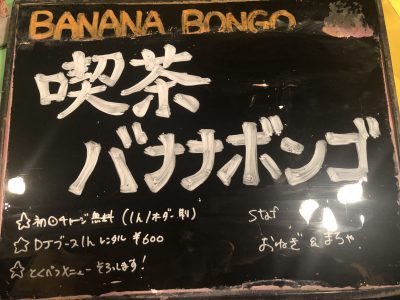 BANANA BONGO
喫茶
バナナボンゴ
☆初回チャージ無料 (1人1オーダー制)
Staf
☆DJブース1h レンタル ¥600
おねぎ & まちゃ
☆とくべつメニュー そろします!